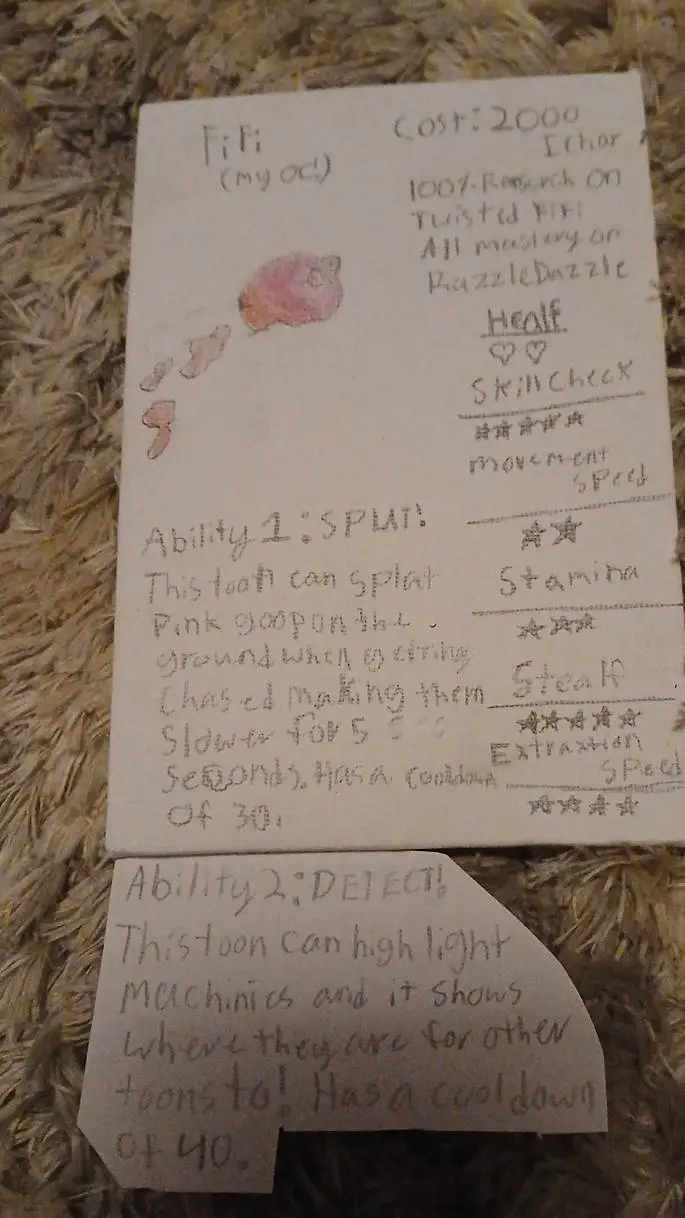 FiFi
(my oc!)
Cost: 2000
Ichor
100% Reserch on
Twisted FiFi
All mastery on
RazzleDazzle
Healf
♡♡
Skill Check
★★★★★
movement
speed
★★
Stamina
★★★
Stealf
★★★★★
Extraxtion
speed
★★★★
Ability 1: SPLAT!
This toon can splat
Pink goop on the
ground when getting
Chased making them
Slower for 5
seconds. Has a cooldown
Of 30.
Ability 2: DETECT!
This toon can high light
Machinies and it shows
where they are for other
toons to! Has a cooldown
Of 40.